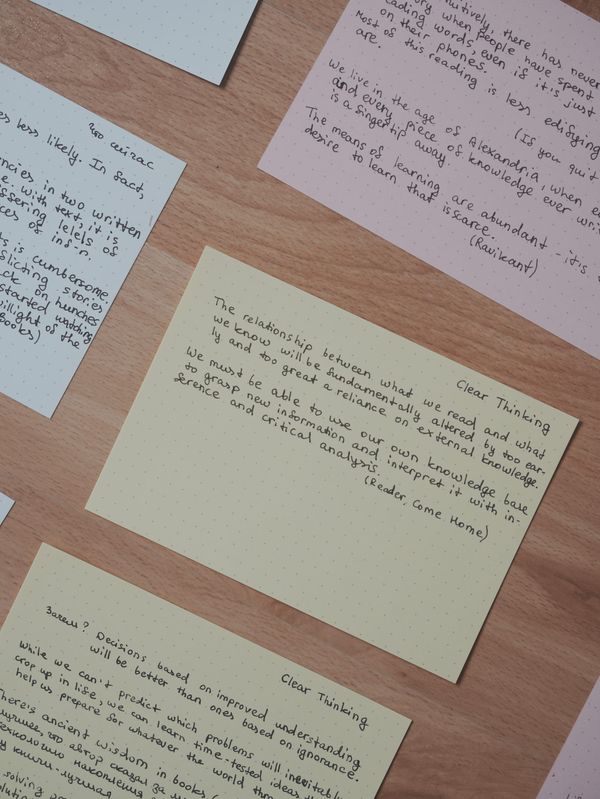 что читать
es less likely. In fact,
ncies in two written
e with text, it is
iffering lelels of
ces of inf-n.
ts is cumbersome
flicting stories
ck on hunches
started watching
willight of the
Books)
nuitively, there has never
ory when people have spent
eading words, even if it's just
on their phones.
Most of this reading is less edifying
are.
(If you quit
We live in the age of Alexandria, when e
and every piece of knowledge ever writ
is a fingertip away.
The means of learning are abundant - it's t
desire to learn that is scarce.
(Ravikant)
Clear Thinking
The relationship between what we read and what
we know will be fundamentally altered by too ear-
ly and too great a reliance on external knowledge.
We must be able to use our own knowledge base
to grasp new information and interpret it with in-
ference and critical analysis.
(Reader, Come Home)
Clear Thinking
Зачем? Decisions based on improved understanding
will be better than ones based on ignorance.
While we can't predict which problems will inevitably
crop up in life, we can learn time-tested ideas th
help us prepare for whatever the world thro
There's ancient wisdom in books (
лучшее, что автор сказал за
технологию накопления
у книги - лучшая
solving pro